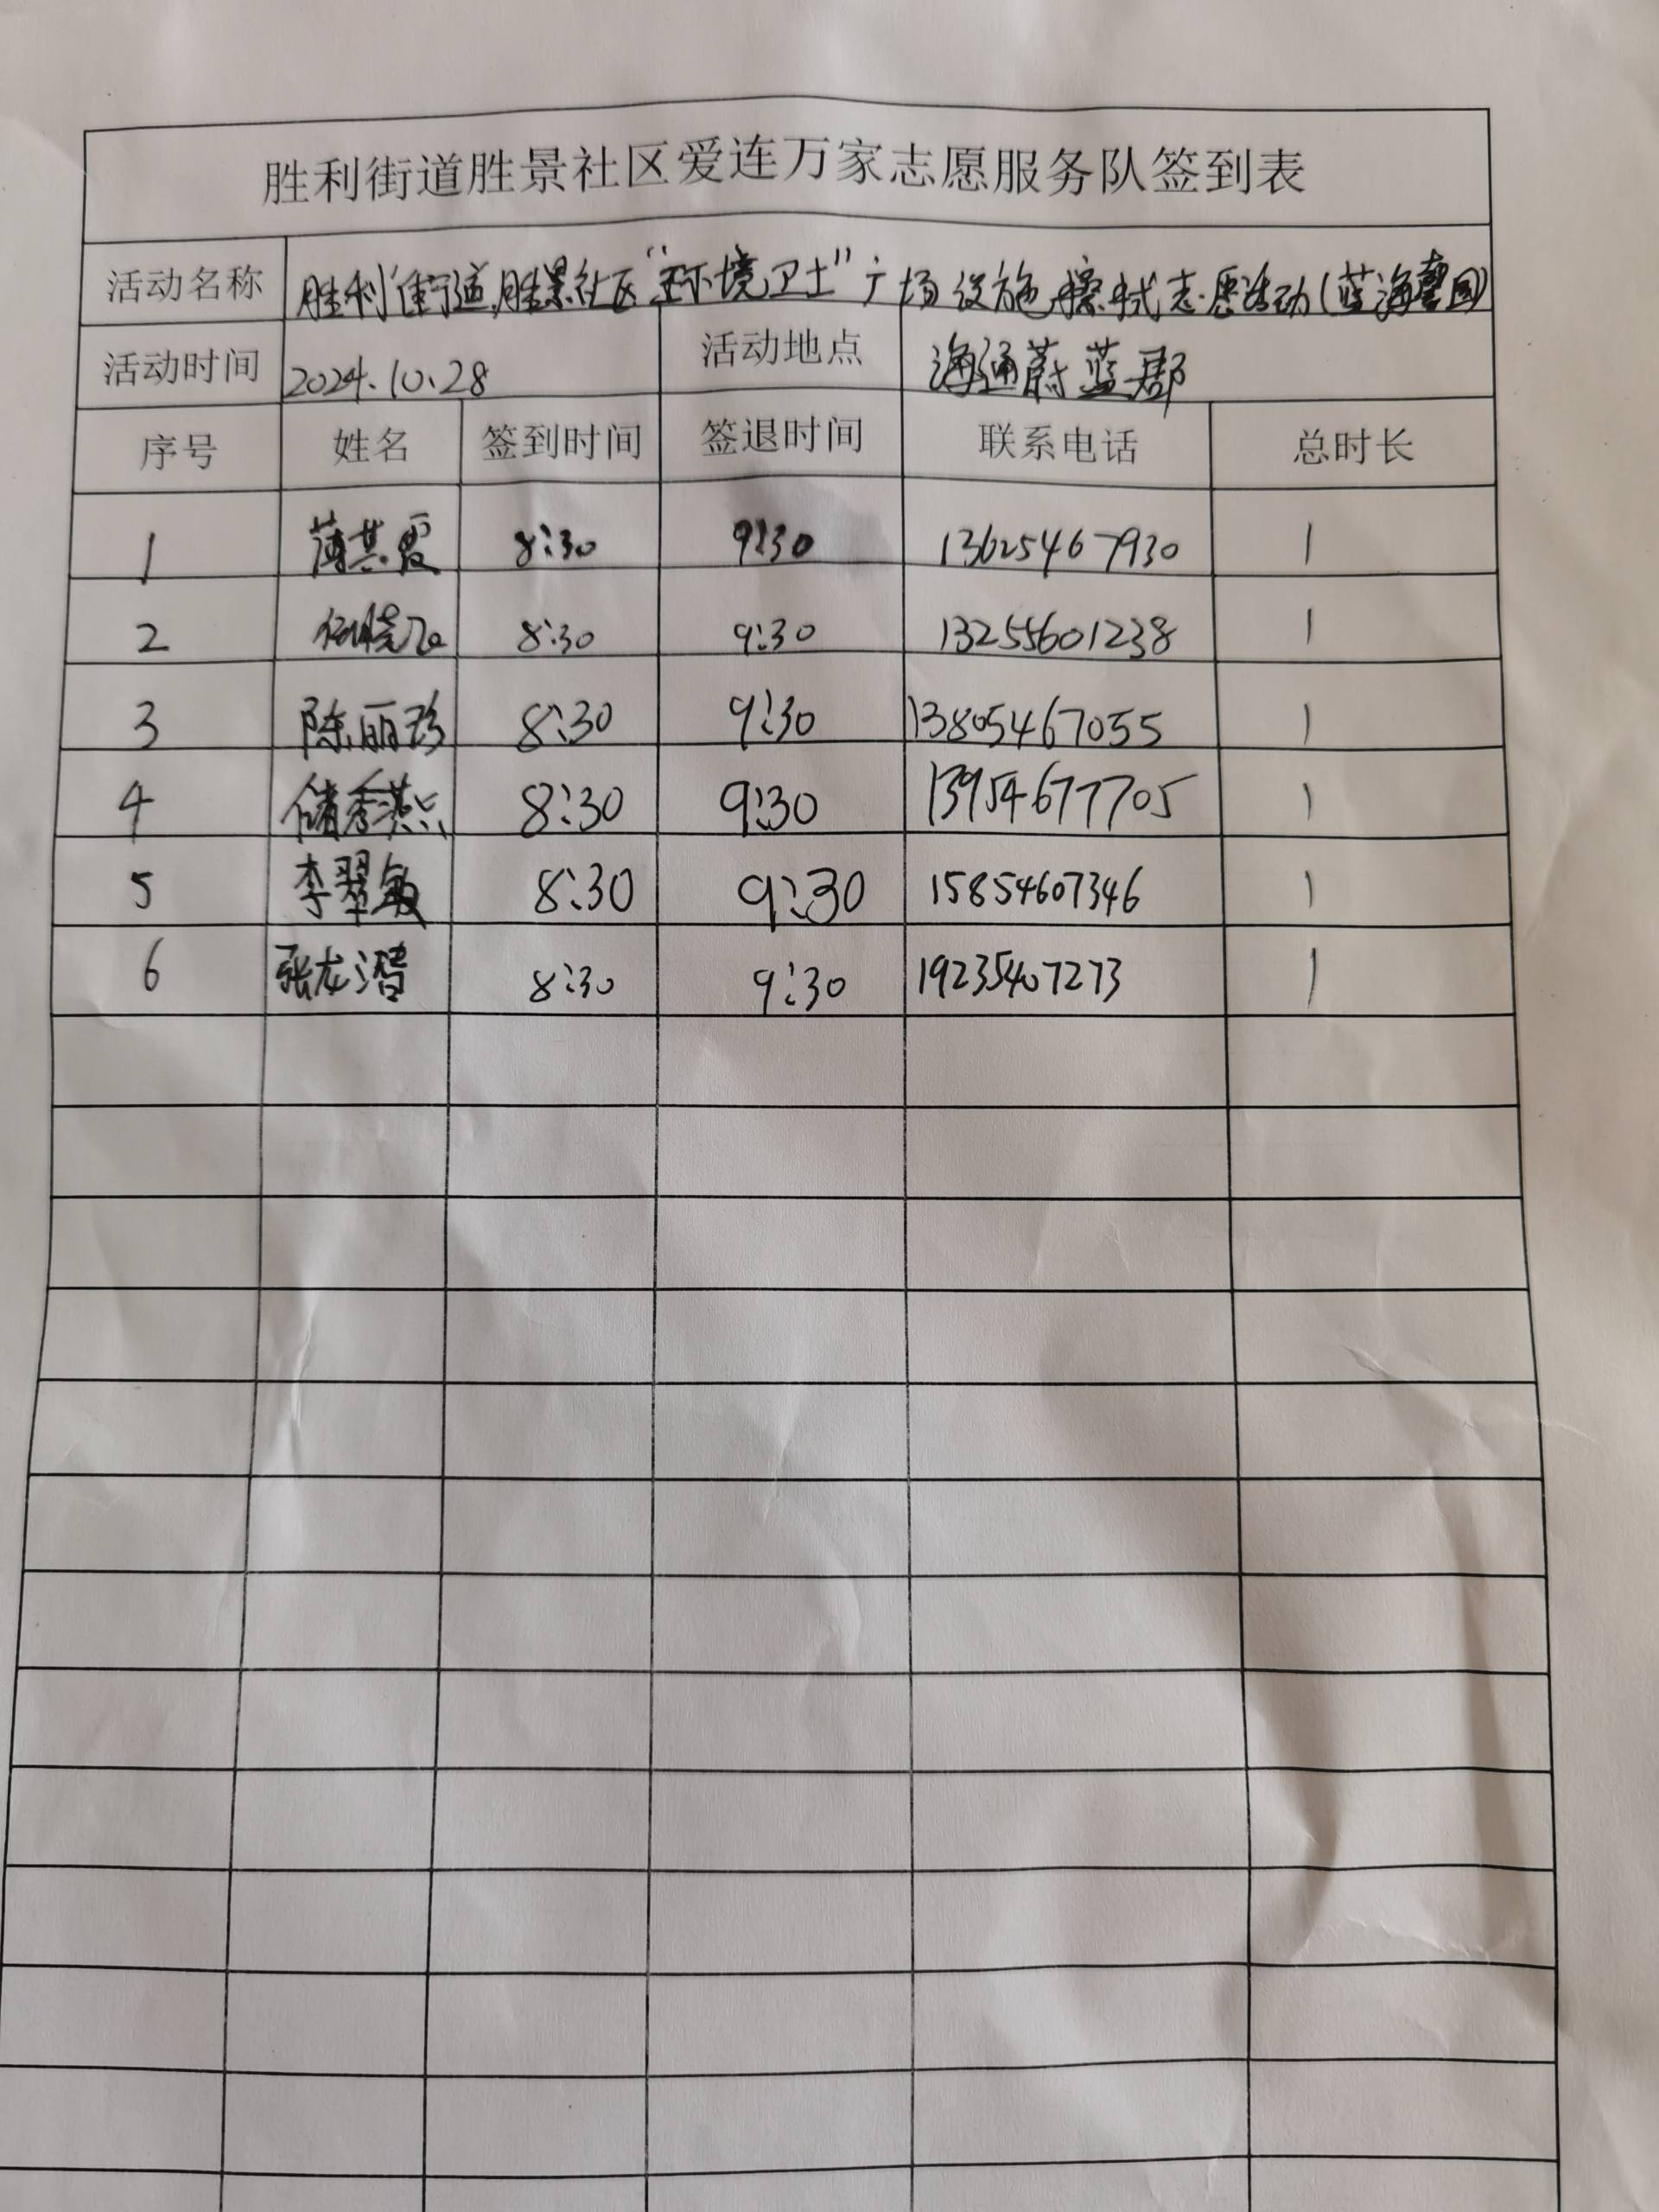 胜利街道胜景社区爱连万家志愿服务队签到表
活动名称 胜利街道胜景社区“环境卫士”广场设施擦拭志愿活动(蓝海馨园)
活动时间 2024.10.28 活动地点 海通蔚蓝郡
序号 姓名 签到时间 签退时间 联系电话 总时长
1 薄其霞 8:30 9:30 13625467930 1
2 8:30 9:30 13255601238 1
3 陈丽珍 8:30 9:30 13805467055 1
4 储秀燕 8:30 9:30 13954677705 1
5 李翠敏 8:30 9:30 15854607346 1
6 张龙潜 8:30 9:30 19235407273 1